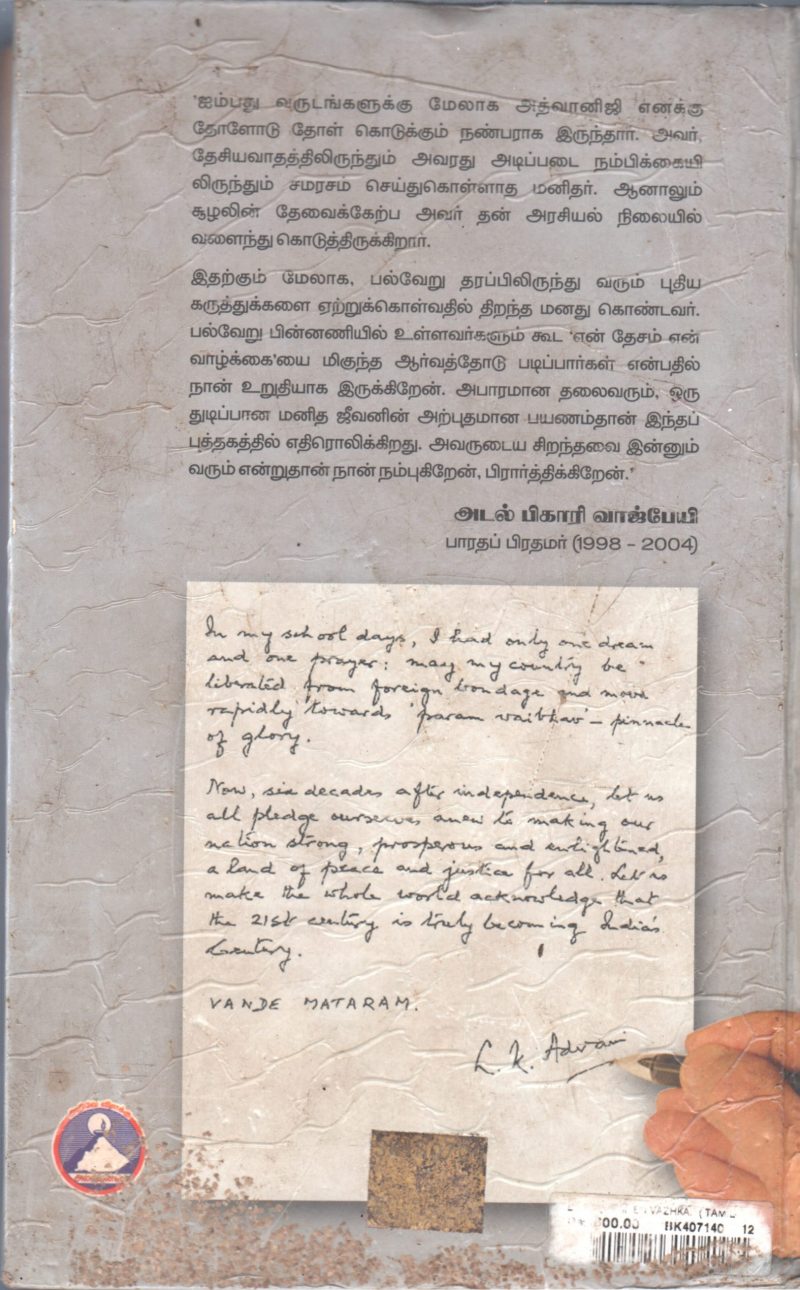 'ஐம்பது வருடங்களுக்கு மேலாக அத்வானிஜி எனக்கு
தோளோடு தோள் கொடுக்கும் நண்பராக இருந்தார். அவர்,
தேசியவாதத்திலிருந்தும் அவரது அடிப்படை நம்பிக்கையி
லிருந்தும் சமரசம் செய்துகொள்ளாத மனிதர். ஆனாலும்
சூழலின் தேவைக்கேற்ப அவர் தன் அரசியல் நிலையில்
வளைந்து கொடுத்திருக்கிறார்.
இதற்கும் மேலாக, பல்வேறு தரப்பிலிருந்து வரும் புதிய
கருத்துக்களை ஏற்றுக்கொள்வதில் திறந்த மனது கொண்டவர்.
பல்வேறு பின்னணியில் உள்ளவர்களும் கூட 'என் தேசம் என்
வாழ்க்கை'யை மிகுந்த ஆர்வத்தோடு படிப்பார்கள் என்பதில்
நான் உறுதியாக இருக்கிறேன். அபாரமான தலைவரும், ஒரு
துடிப்பான மனித ஜீவனின் அற்புதமான பயணம்தான் இந்தப்
புத்தகத்தில் எதிரொலிக்கிறது. அவருடைய சிறந்தவை இன்னும்
வரும் என்றுதான் நான் நம்புகிறேன், பிரார்த்திக்கிறேன்.'
அடல் பிகாரி வாஜ்பேயி
பாரதப் பிரதமர் (1998 - 2004)
In my school days, I had only one dream
and one prayer: may my country be
liberated from foreign bondage and move
rapidly towards 'param vaibhav' – pinnacle
of glory.
Now, six decades after independence, let us
all pledge ourselves anew to making our
nation strong, prosperous and enlightened,
a land of peace and justice for all. Let us
make the whole world acknowledge that
the 21st century is truly becoming India's
Century.
VANDE MATARAM.
L. K. Advani
EN VAZHKA. (TAMIL
00.00 BK407140 12